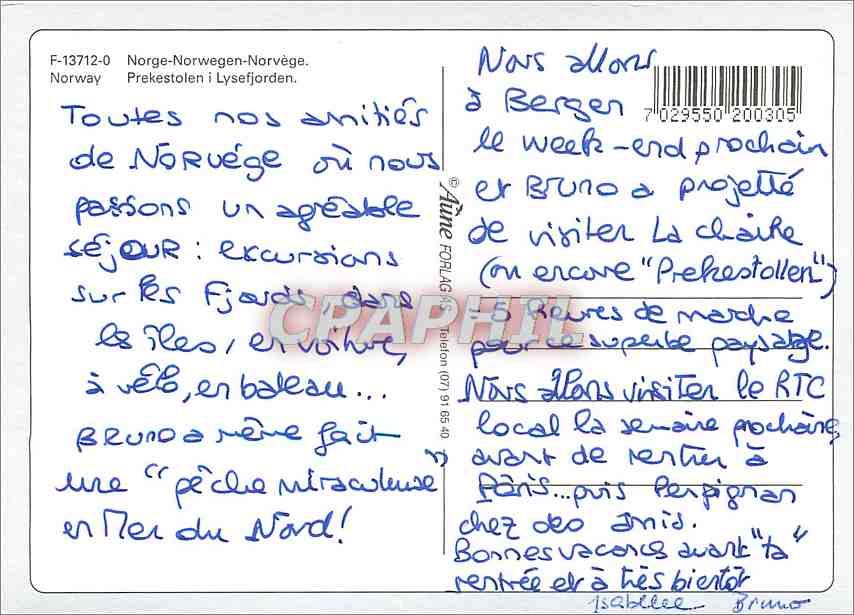 F-13712-0 Norge-Norwegen-Norvège.
Norway Prekestolen i Lysefjorden.
Toutes nos amitiés
de Norvége où nous
passons un agréable
séjour : excursions
sur les Fjords, dans
les îles, en voiture,
à vélo, en bateau...
Bruno a même fait
une "pêche miraculeuse"
en Mer du Nord!
© Aune FORLAG AS Telefon (07) 91 65 40
7 029550 200305
Nous allons
à Bergen
le week-end prochain
et Bruno a projetté
de visiter La chaire
(ou encore "Prekestollen")
= 5 heures de marche
pour ce superbe paysage.
Nous allons visiter le RTC
local la semaine prochaine,
avant de rentrer à
Paris...puis Perpignan
chez des amis.
Bonnes vacances avant "ta"
rentrée et à très bientôt
Isabelle Bruno
CPAPHIL